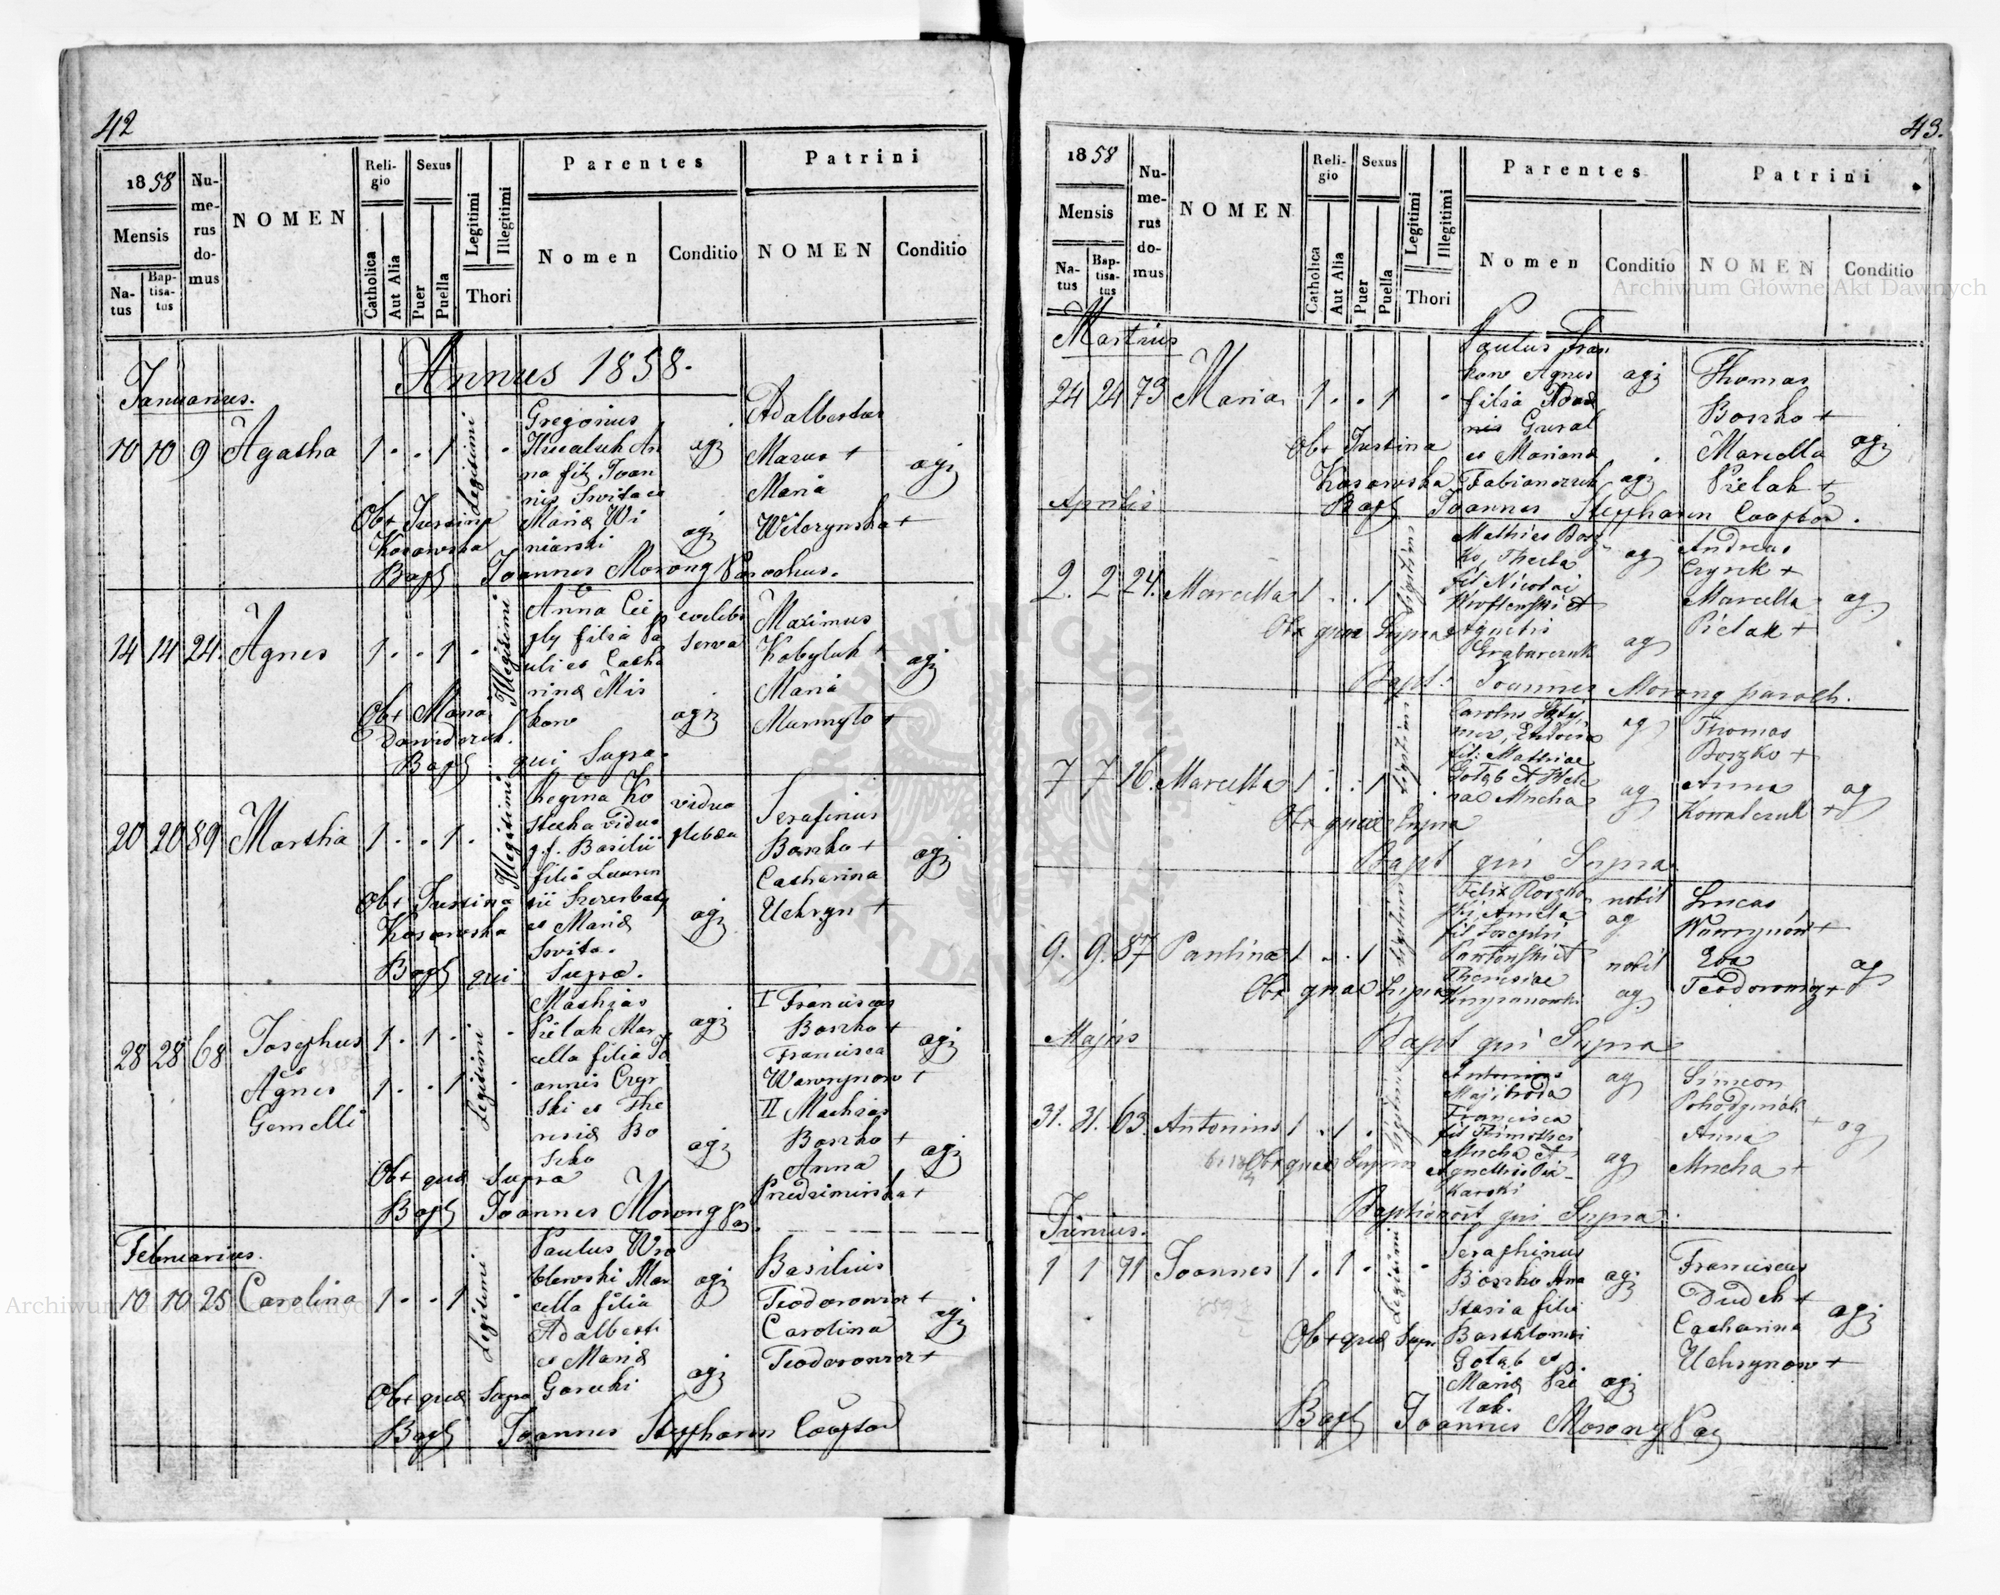 42
1858
Mensis
Natus
Baptisatus
Numerus domus
NOMEN
Religio
Catholica
Aut Alia
Sexus
Puer
Puella
Legitimi
Illegitimi
Thori
Parentes
Nomen
Conditio
Patrini
NOMEN
Conditio
Annus 1858.
Januarius.
10 10 9 Agatha 1 . . 1 Legitimi .
Gregorius
Anna
fil Joan
nis Swita et
Mariæ Wi
niarski
agr
agr
Adalbertus
Mazur +
Maria
Wilczynska +
agr
Obst Justina
Kosowska
Bapt Joannes Morong Parochus.
14 14 24. Agnes 1 . . 1 . Illegitimi
Anna Cie
ply filia Pa
uli et Catha
rinæ Mis
kow
serva
agr
Maximus
Kobyluk +
Maria
+
agr
Obst Maria
Dawidczuk.
Bapt qui Supra.
20 20 89 Martha 1 . . 1 . Illegitimi
Regina Ko
stecka vidua
p. f. Basilii
filia Lauren
tii Szczerbaty
et Mariæ
Swita.
vidua
plebea
agr
Serafinus
Boszko +
Catharina
Uchryn +
agr
Obst Justina
Kosowska
Bapt qui Supra.
28 28 68 Josephus 1 . 1 . Legitimi .
et
Agnes 1 . . 1 .
Gemelli
Mathias
Pielak Mar
cella filia Jo
annis Czyr
ski et The
resiæ Bo
szko
agr
agr
I Franciscus
Boszko +
Francisca
Wawrynow +
II Mathias
Boszko +
Anna
+
agr
agr
Obst quæ Supra
Bapt Joannes Morong Par.
Februarius.
10 10 25 Carolina 1 . . 1 Legitimi .
Paulus Wro
blewski Mar
cella filia
Adalberti
et Mariæ
Gorecki
agr
agr
Basilius
Teodorowicz +
Carolina
Teodorowicz +
agr
Obst quæ Supra
Bapt Joannes Stepphann Cooptor
43.
1858
Mensis
Natus
Baptisatus
Numerus domus
NOMEN
Religio
Catholica
Aut Alia
Sexus
Puer
Puella
Legitimi
Illegitimi
Thori
Parentes
Nomen
Conditio
Patrini
NOMEN
Conditio
Martius
24 24 73 Maria 1 . . 1 .
Paulus Fran
kow Agnes
filia
Gural
et Mariana
Fabianczuk
agr
agr
Thomas
Boszko +
Marcella
Pielak +
agr
Obst Justina
Kosowska
Bapt Joannes Stepphann Cooptor.
Aprilis
2. 2 24. Marcella 1 . . 1 Legitimi
Mathias Bosz
ko, Thecla
fil Nicolai
et
Agnetis
Grabarczuk
ag
ag
Andreas
Czyrek +
Marcella
Pielak +
ag
Obst quæ Supra
Bapt: Joannes Morong paroch.
7 7 26. Marcella 1 . . 1 Legitimi
Carolus
fil: Mathiae
Gołąb et Hele
nae Mucha
ag
ag
Thomas
Boszko +
Anna
Kowalczuk +
ag
Obst quæ Supra
Bapt qui Supra
9. 9. 87 Paulina 1 . . 1 Legitimi
Felix
Amelia
fil Josephi
et
Thomasiae
nobil
ag
nobil
ag
Lucas
Wawrynow +
Eva
Teodorowicz +
ag
Obst quae Supra
Bapt qui Supra
Majus
31. 31. 63. Antonius 1 . 1 . Legitimi
Antonius
Majibroda
Francisca
fil Timothei
Mucha et
Agnetis Pie-
karski
ag
ag
Simeon
+
Anna
Mucha +
ag
Obst quae Supra
Baptisavit qui Supra.
Junius.
1 1 71 Joannes 1 . 1 . Legitimi .
Seraphinus
Boszko Ana
stasia filia
Barthlomei
Gołąb et
Mariæ Pie
lak.
agr
agr
Franciscus
Dudek +
Catharina
Uchrynow +
agr
Obst quæ Supra
Bapt Joannes Morong Par
Archiwum Główne Akt Dawnych
Archiwum Główne Akt Dawnych
ARCHIWUM GŁÓWNE AKT DAWNYCH